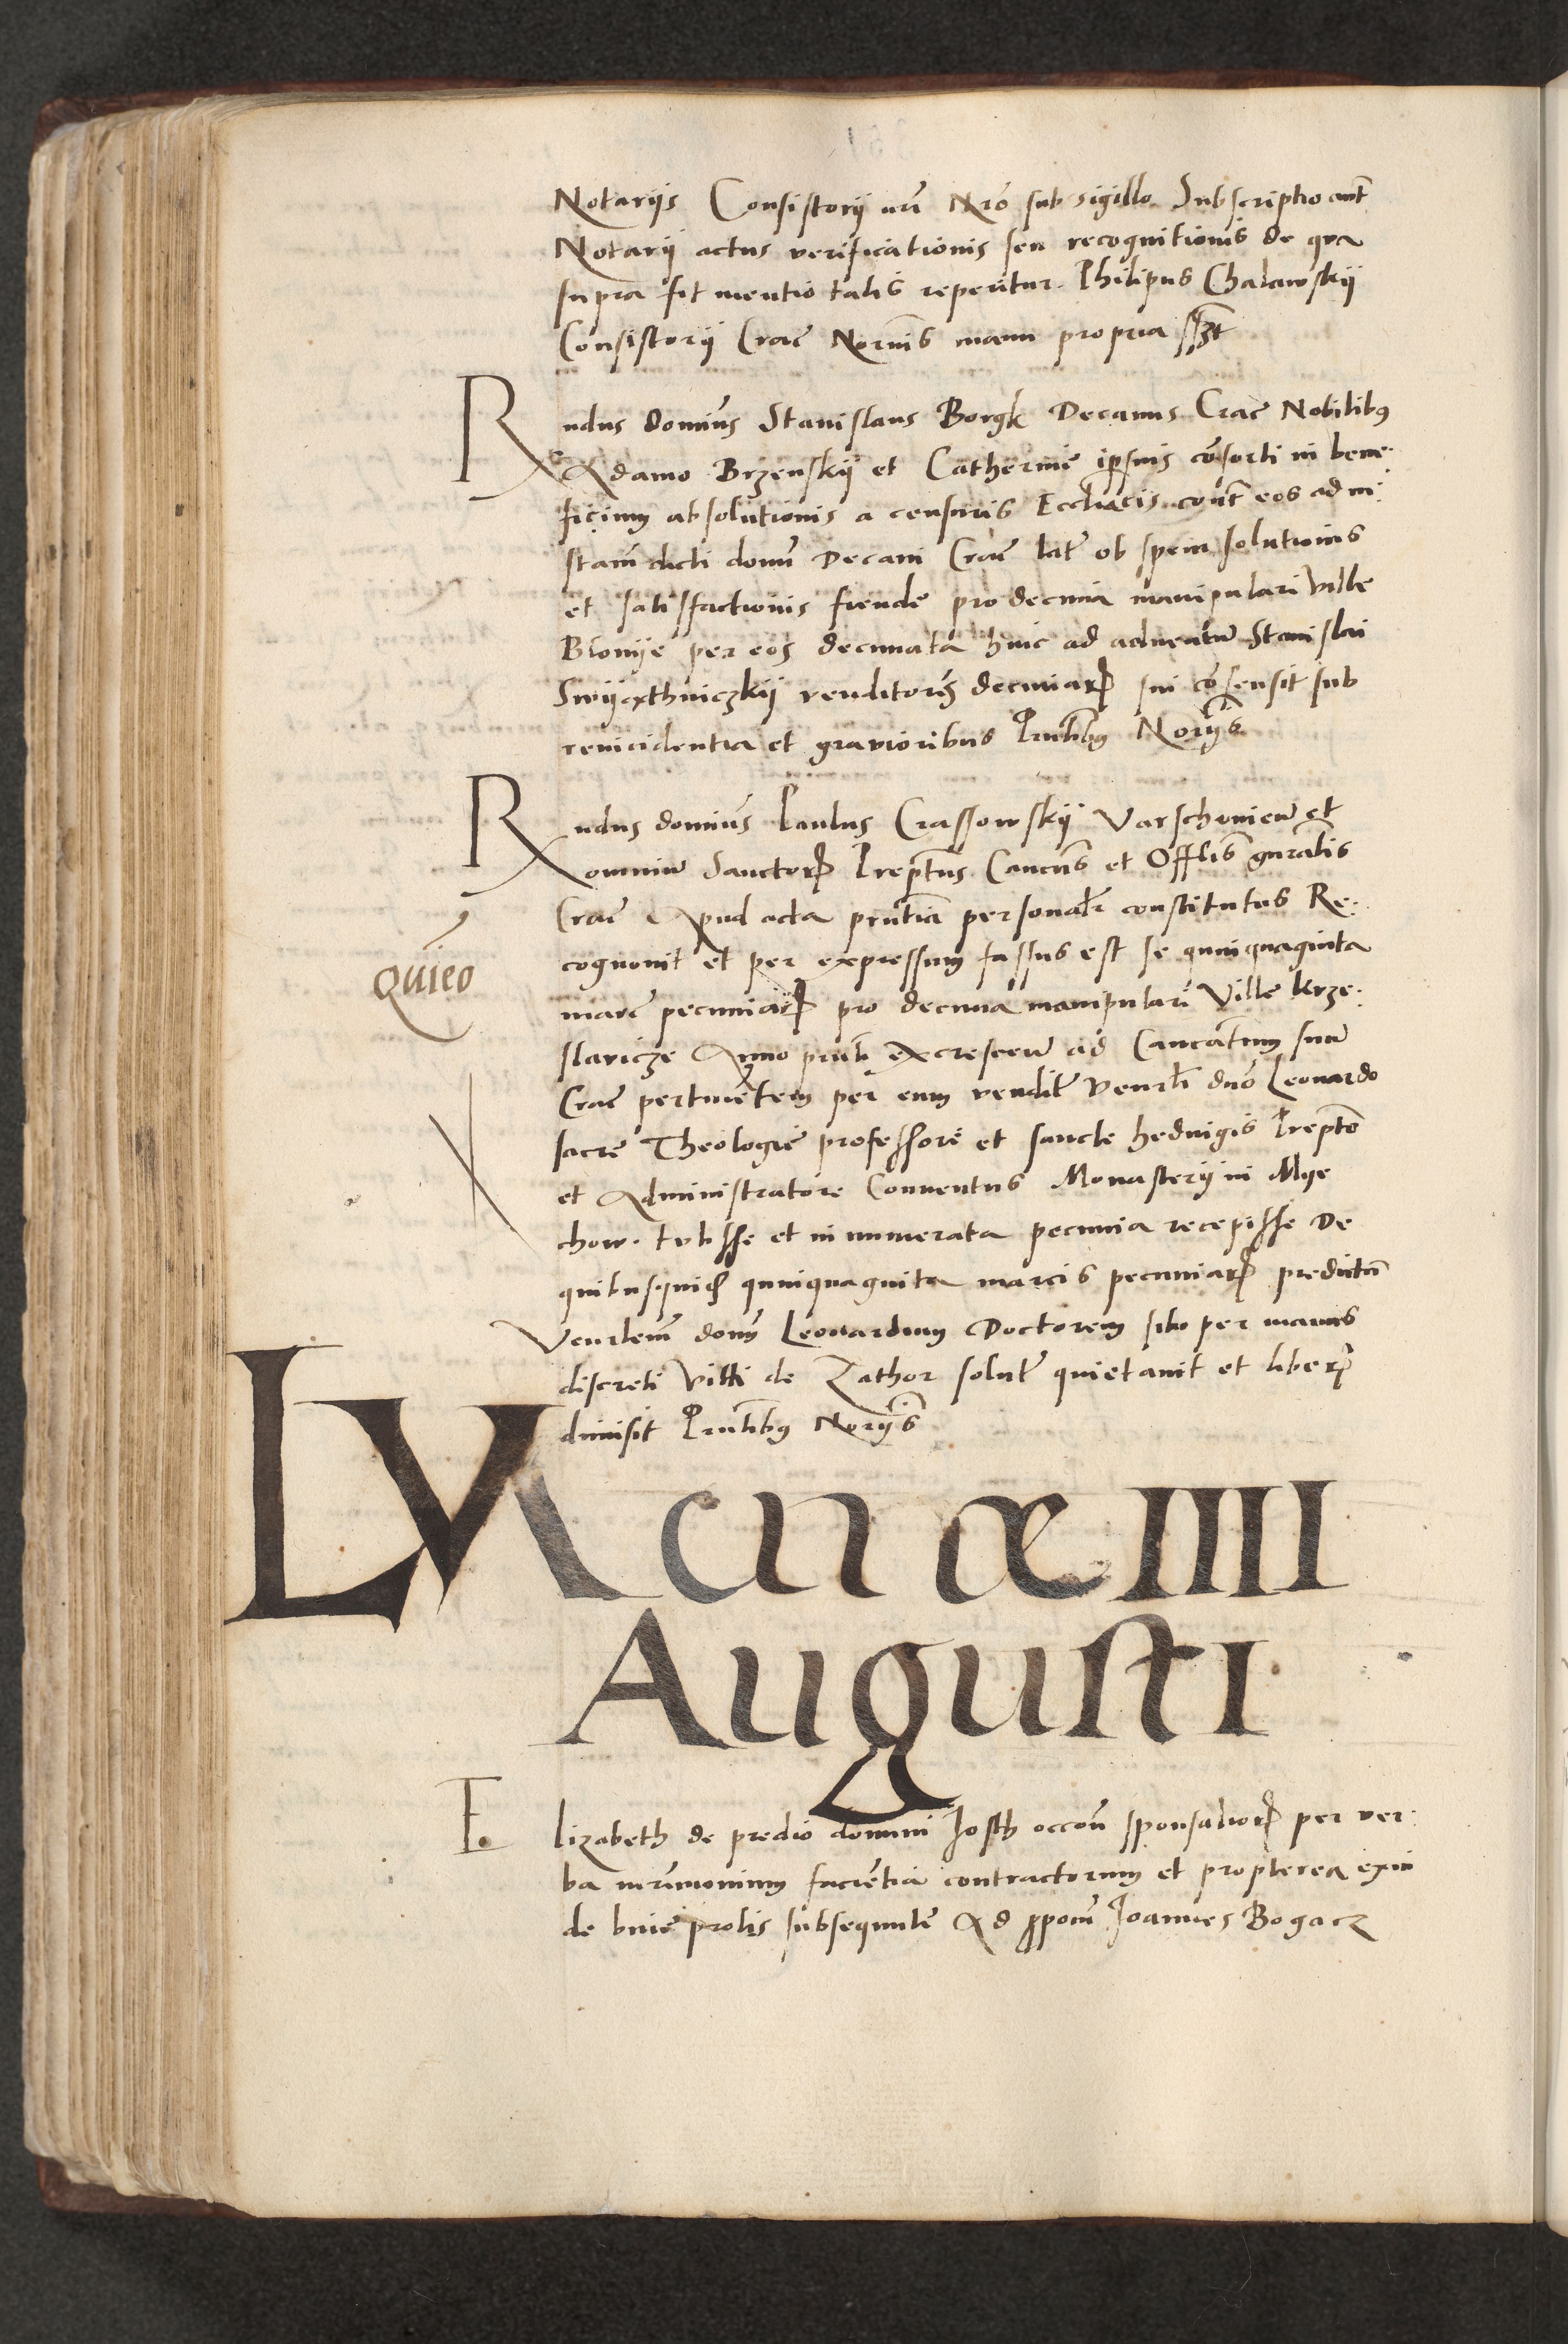 Notarijs Consistorij nrī Nr̄o sub sigillo. Subscriptio aut̄
Notarij actus verificationis seu recognitionis de qua
supra fit mentio talis reperitur. Philipus Chalawskij
Consistorij Crac̄ Nornīs manu propria sszt
Rndus dominūs Stanislaus Borgk Decanus Crac̄ Nobilibus
Adamo Brzenskij et Catherinē ip̄sius cōsorti in bene:
ficium absolutionis a censuris Eccl̄iacis cont̄ eos ad in:
stam̄ dicti domn̄ Decani Crac̄ lat̄ ob spem solutionis
et satisfactionis fiendē pro decima manipulari Ville
Blonije per eos decimata huic ad aduentum Stanislai
Swijexthniczkij venditorēs decimarꝝ sui cōsensit sub
reincidentia et grauioribus Prn̄tibus Norijs.
Rndus dominūs Paulus Crassowskij Varschouien̄ et
omnium Sanctorꝝ Prept̄us Canc̄us et Offl̄is gnrālis
Crac̄ Apud acta prn̄tia personalr̄ constitutus Re:
cognouit et per expressum fassus est se quinquaginta
marc̄ pecuniarꝝ pro decima manipularī Villē Krze:
Quieō
slauicze Anno prn̄ti excrescen̄ ad Cancāatum suum
Crac̄ pertinētem per eum vendit̄ Venrl̄i dn̄o Leonardo
sacrē Theologiē professorē et sanctē hedwigis Prept̄o
et Administratore Conuentus Monasterij in Mije
chow. tulisse et in numerata pecunia recepisse De
quibusquidꝫ quinquaginta marcis pecuniarꝝ predictū
Venrlem̄ domn̄ Leonardum Doctorem sibi per manus
discreti Vitti de Zathor solut̄ quietauit et liberꝝ
dimisit Prn̄tibus Norijs
LVnæ IIII
Augusti
Elizabeth de predio domini Josth occoñ sponsaliorꝝ per ver:
ba mr̄imonium facientia contractorum et propterea exin
de hniē prolis subsequut̄e Ad ꝓpom̄ Joannes Bogacz